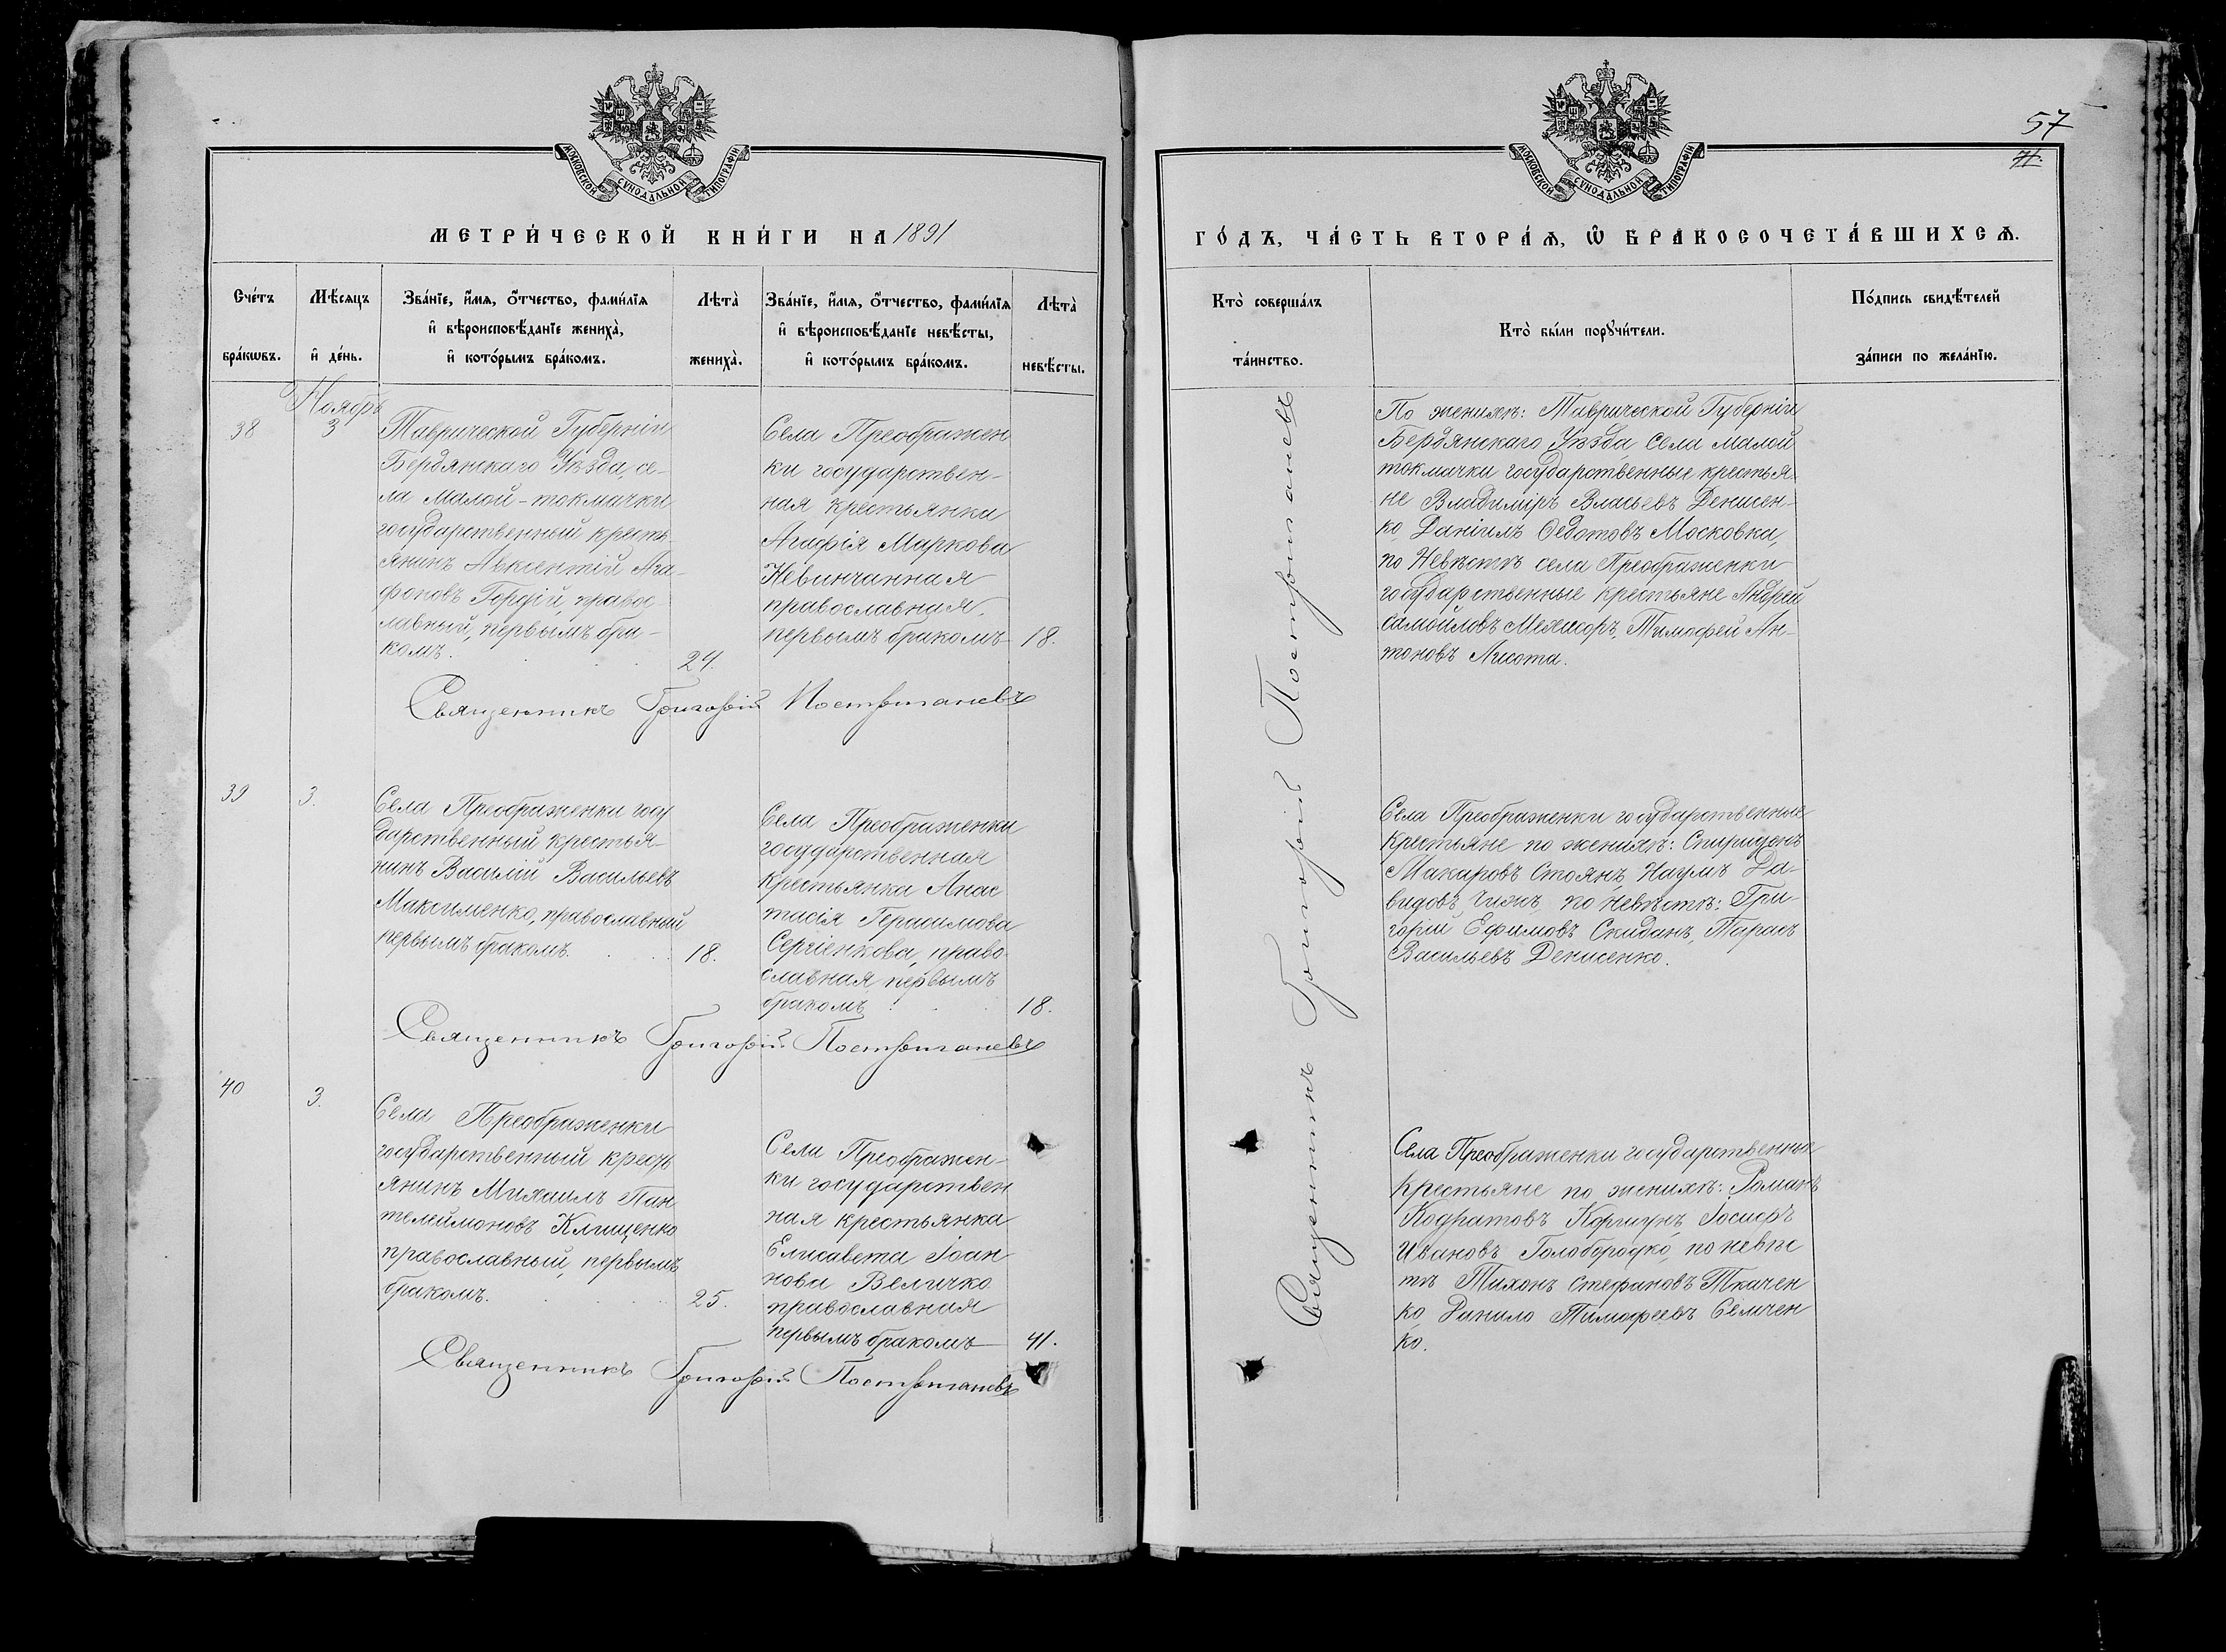 МОСКОВСКОЙ СѴНОДАЛЬНОЙ ТИПОГРАФІИ
МЕТРИ́ЧЕСКОЙ КНИ́ГИ НА 1891
Сче́тъ бра́кѡвъ.
Мѣ́сяцъ и де́нь.
Зва́нїе, и́мѧ, о́тчество, фами́лїѧ
и вѣроисповѣ́данїе жениха̀,
и кото́рымъ бра́комъ.
Лѣта̀ жениха̀.
Зва́нїе, и́мѧ, о́тчество, фами́лїѧ
и вѣроисповѣ́данїе невѣ́сты,
и кото́рымъ бра́комъ.
Лѣта̀ невѣ́сты.
Ноябрь
38
3
Таврической Губерніи
Бердянскаго Уѣзда, се-
ла Малой-токмачки
государственный кресть
янинъ Авксентій Ага-
фоновъ Гордій, правос-
лавный, первымъ бра-
комъ.
24.
Села Преображен
ки государствен-
ная крестьянка
Агафія Маркова
Невинчанная
православная,
первымъ бракомъ
18.
Священникъ Григорій
39
3.
Села Преображенки госу
дарственный крестья-
нинъ Василій Васильевъ
Максименко, православный
первымъ бракомъ.
18.
Села Преображенки
государственная
крестьянка Анас
тасія Герасимова
Сергіенкова, право
славная первымъ
бракомъ
18.
Священникъ Григорій
40
3.
Села Преображенки
государственный кресть
янинъ Михаилъ Пан
телеймоновъ Клищенко
православный, первымъ
бракомъ.
25.
Села Преображен-
ки государствен
ная крестьянка
Елисавета Іоан
нова Величко
православная
первымъ бракомъ
41.
Священникъ Григорій
57
МОСКОВСКОЙ СѴНОДАЛЬНОЙ ТИПОГРАФІИ
ГО́ДЪ, ЧА́СТЬ ВТОРА́Ѧ, Ѡ БРАКОСОЧЕТА́ВШИХСѦ.
Кто̀ соверша́лъ
та́инство.
Кто̀ бы́ли порꙋчи́тели.
По́дпись свидѣ́телей
за́писи по жела́нїю.
Священникъ Григорій
По женихѣ: Таврической Губерніи
Бердянскаго Уѣзда, села малой
токмачки государственные крестья-
не Владиміръ Власьевъ Денисен-
ко, Даніилъ Федотовъ Московка,
по Невѣстѣ села Преображенки
государственные крестьяне Андрей
Самойловъ Тимофей Ан-
тоновъ
Села Преображенки государственные
крестьяне по женихѣ: Спиридонъ
Макаровъ Стоянъ, Наумъ Да-
видовъ Чижъ, по невѣстѣ: Гри-
горій Ефимовъ Скиданъ, Тарасъ
Васильевъ Денисенко.
Села Преображенки государственные
крестьяне по женихѣ: Романъ
Кодратовъ Коршунъ, Іосифъ
Ивановъ Голобородко, по невѣс
тѣ Тихонъ Стефановъ Ткачен
ко, Данило Тимофеевъ Семчен
ко.